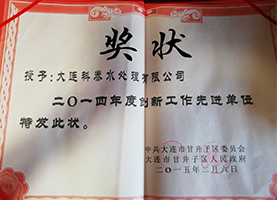 奖状
授予:大连科泰水处理有限公司
二〇一四年度创新工作先进单位
特发此状。
中共大连市甘井子区委员会
大连市甘井子区人民政府
二〇一五年二月六日